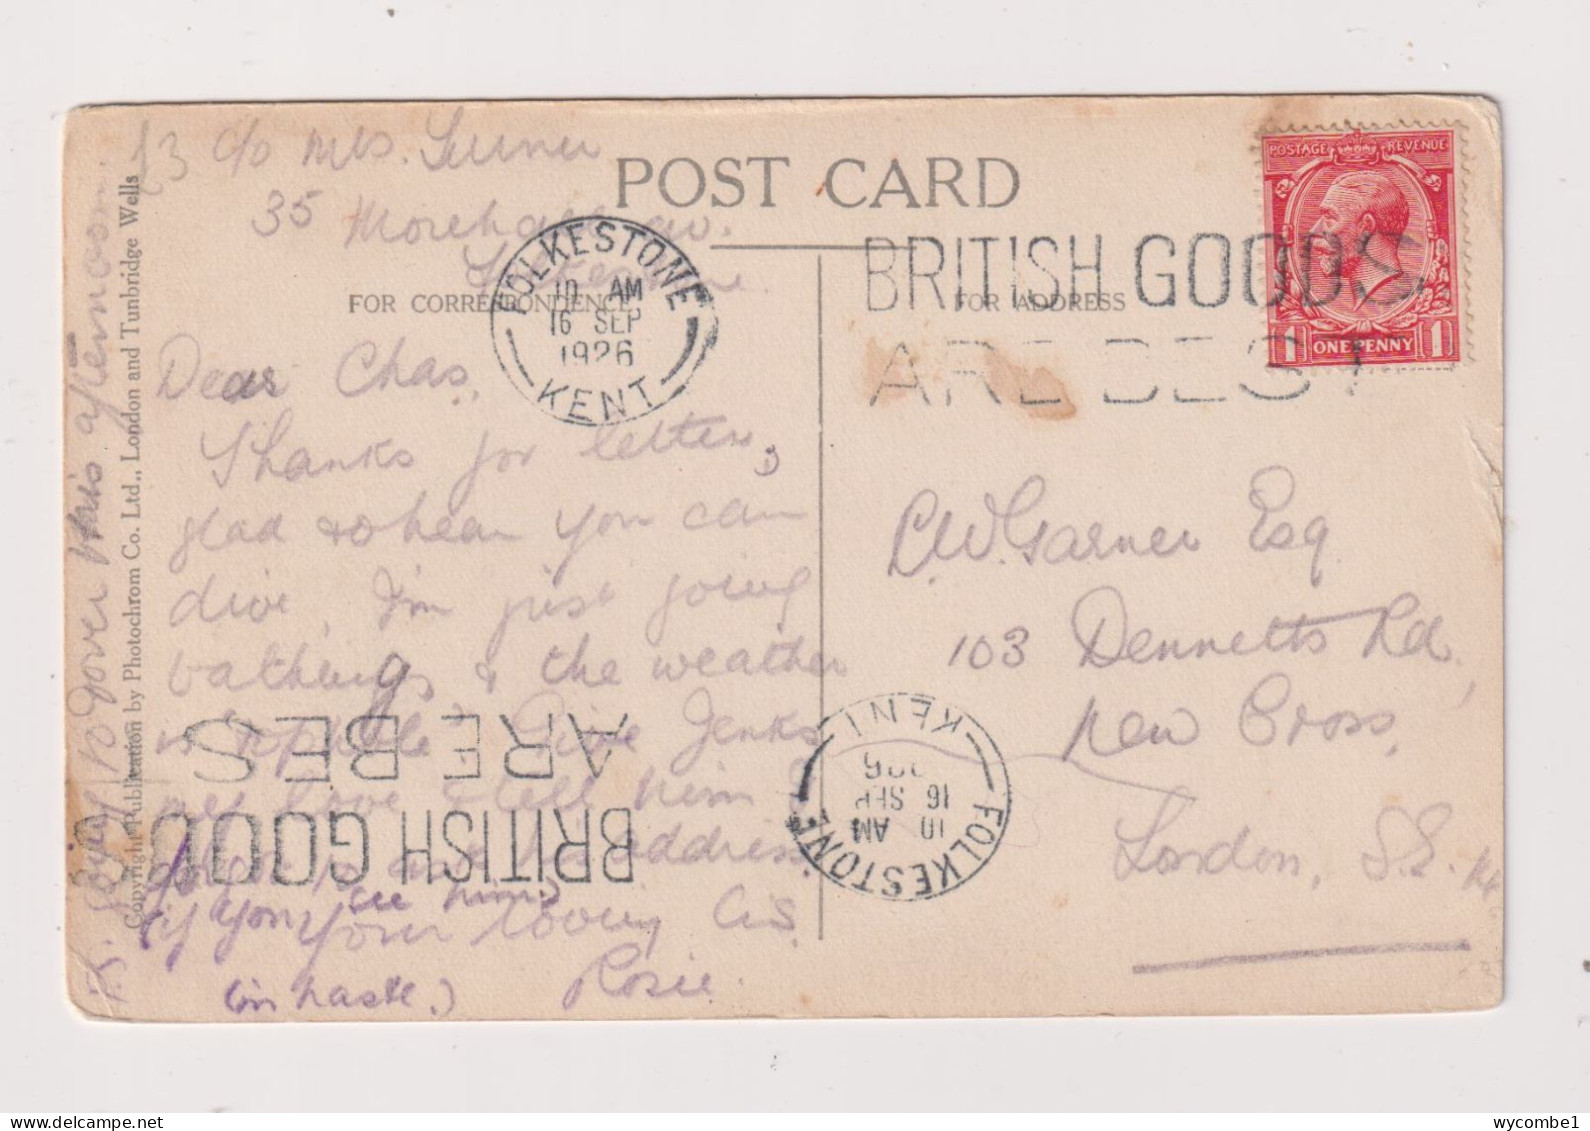 c/o Mrs. Turner
35 Morehall av.
Folkestone.
POST CARD
FOR CORRESPONDENCE
FOR ADDRESS
FOLKESTONE
10 AM
16 SEP
1926
KENT
BRITISH GOODS
ARE BEST
POSTAGE REVENUE
1 ONE PENNY 1
Dear Chas.
Thanks for letter,
glad to hear you can
dive, I'm just going
bathing & the weather
is Give Jenks
my love & tell him
to address
(if you see him)
Your loving Cis.
(in haste.) Rosie.
P.S. going to Dover this afternoon.
Copyright Publication by Photochrom Co. Ltd., London and Tunbridge Wells
C.W. Garner Esq
103 Dennetts Rd,
New Cross,
London, S.E.
FOLKESTONE
10 AM
16 SEP
926
KENT
BRITISH GOOD
ARE BES
wycombe1